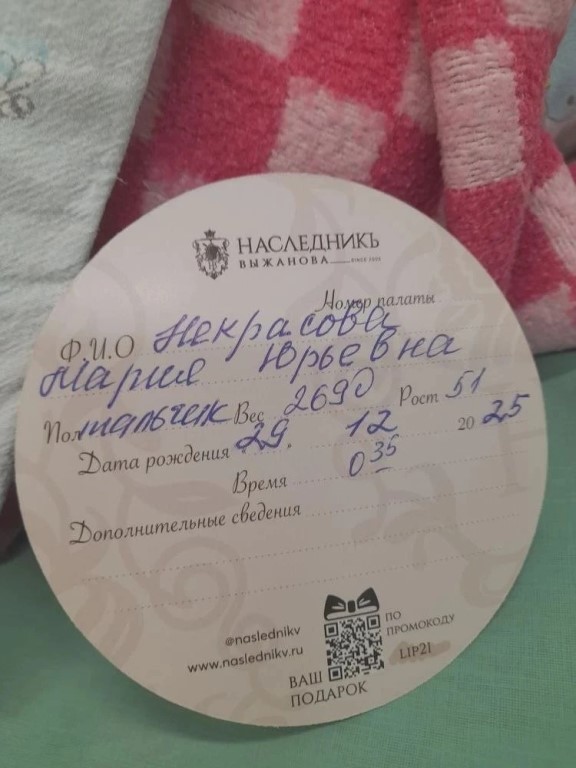 НАСЛЕДНИКЪ
ВЫЖАНОВА SINCE 1999
Номер палаты
Ф.И.О Некрасова
Мария Юрьевна
Пол мальчик Вес 2690 Рост 51
Дата рождения 29. 12 20 25
Время 0 35
Дополнительные сведения
@naslednikv
www.naslednikv.ru
ВАШ ПОДАРОК
ПО ПРОМОКОДУ
LIP21